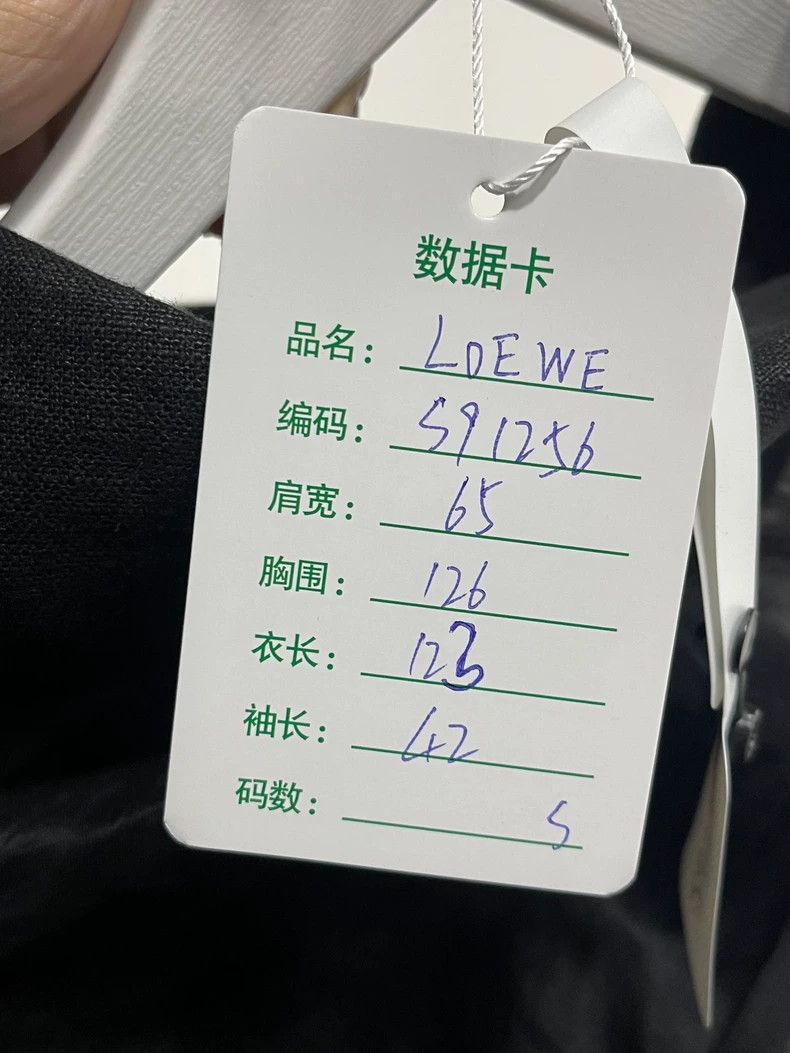 数据卡
品名：LOEWE
编码：591256
肩宽：65
胸围：126
衣长：123
袖长：42
码数：S